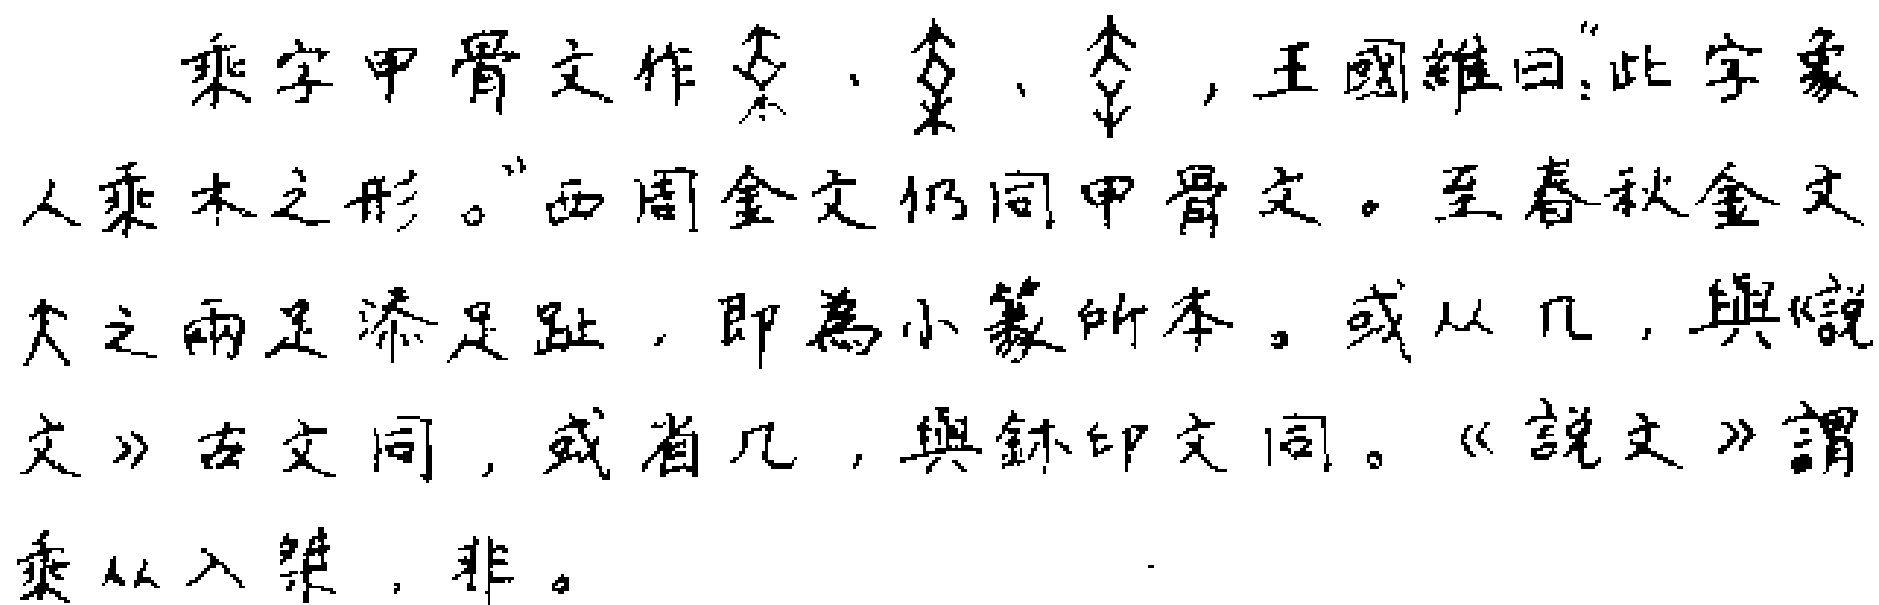 乘字甲骨文作、、，王國維曰：“此字象
人乘木之形。”西周金文仍同甲骨文。至春秋金文
大之兩足添足趾，即為小篆所本。或从几，與《說
文》古文同，或省几，與鉨印文同。《說文》謂
乘从入桀，非。